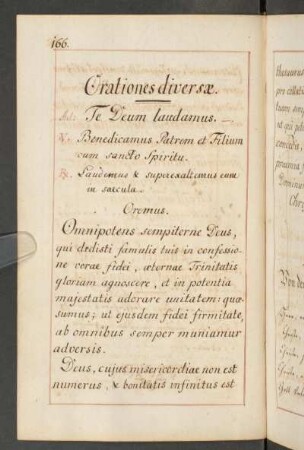 166.
Orationes diversæ.
Ant. Te Deum laudamus. —.
℣. Benedicamus Patrem et Filium
cum sancto Spiritu.
℟. Laudemus & superexaltemus eum
in sæcula.
Oremus.
Omnipotens sempiterne Deus,
qui dedisti famulis tuis in confessio
ne veræ fidei, æternæ Trinitatis
gloriam agnoscere, et in potentia
majestatis adorare unitatem: quæ
sumus; ut ejusdem fidei firmitate,
ab omnibus semper muniamur
adversis.
Deus, cujus misericordiæ non est
numerus, & bonitatis infinitus est